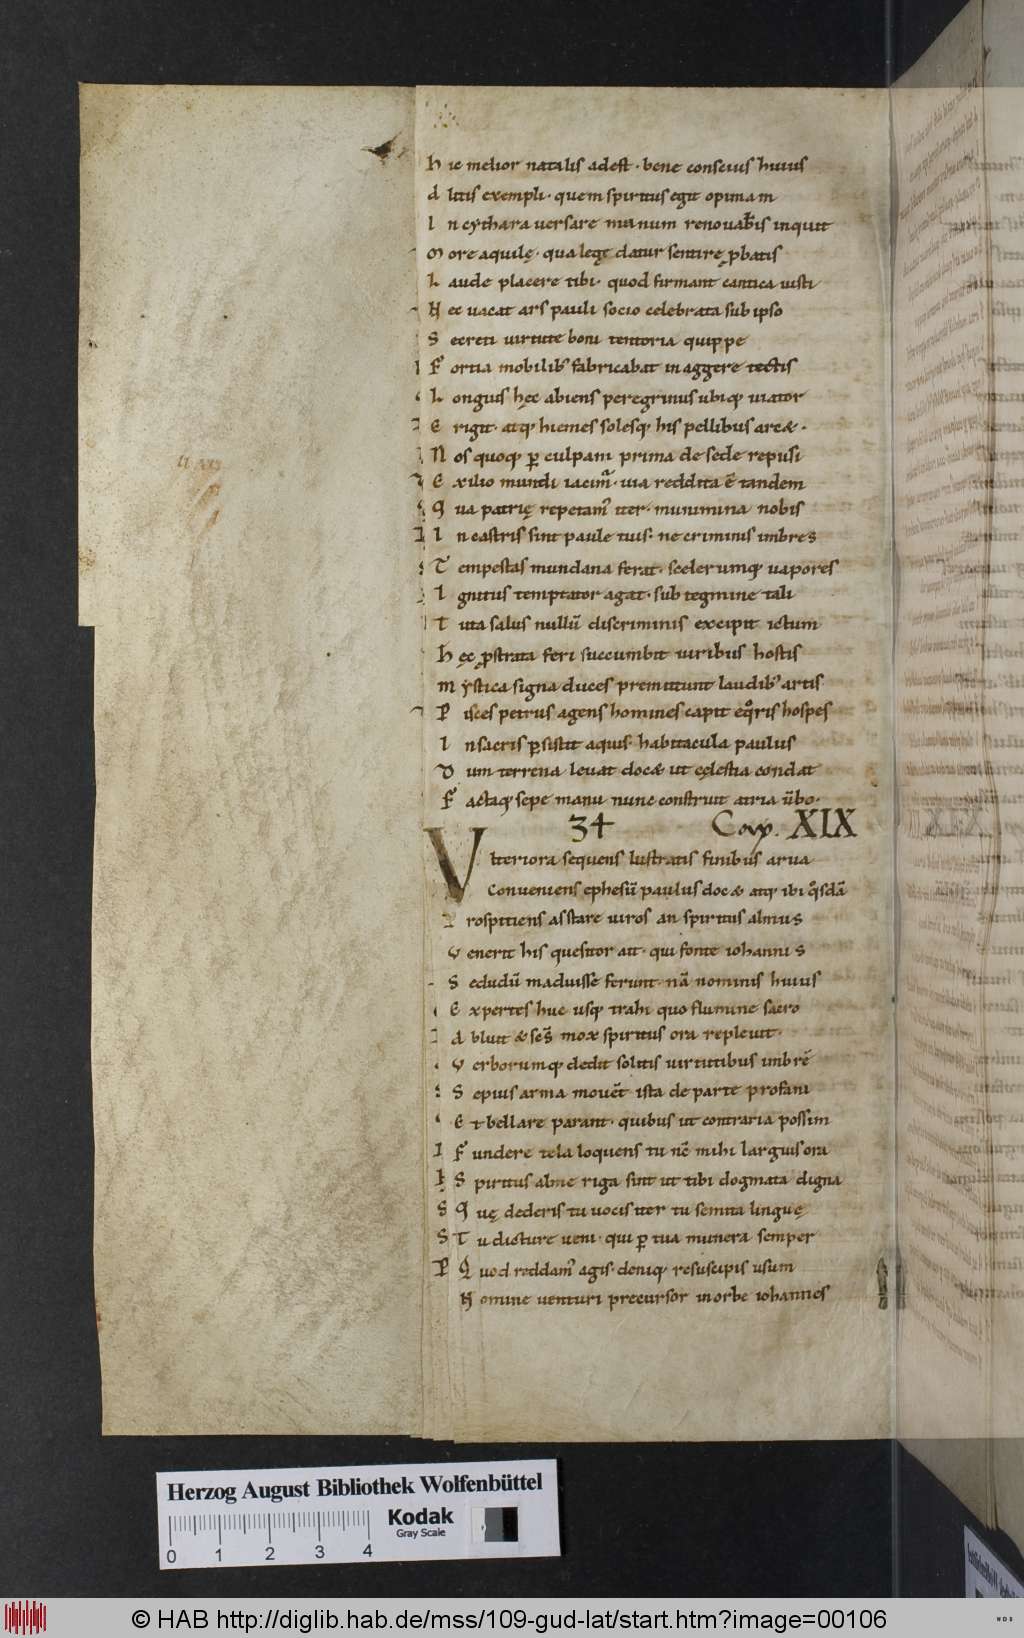 H ic melior natalis adest · bene conscius huius
d iuis exempli · quem spiritus egit opimam
I n cythara uersare manum renouab̄is inquit
M ore aquilę · qua lege datur sentire p̱batis
L aude placere tibi · quod firmant cantica uisti
H ec uacat ars pauli socio celebrata sub ipso
S ecreti uirtute boni tentoria quippe
F ortia mobilib; fabricabat in aggere tectis
L ongus hęc abiens peregrinus ubiq; uiator
E rigit · atq; hiemes solesq; his pellibus arcæ ·
N os quoq; ꝑ culpam prima de sede repulsi
E xilio mundi iacim᷒ · uia reddita ē tandem
Q ua patrię repetam᷒ iter · munimina nobis
I n castris sint paule tuis · ne criminis imbres
T empestas mundana ferat · scelerumq; uapores
I gnitus temptator agat · sub tegmine tali
T uta salus nullū discriminis excipit ictum
H ęc p̱strata feri succumbit uiribus hostis
M ystica signa duces premittunt laudib; artis
P isces petrus agens homines capit eq̊ris hospes
I n sacris ꝑsistit aquis · habitacula paulus
D um terrena leuat docæ ut cęlestia condat
F actaq; sepe manu nunc construit atria ūbo ·
34 Cap. XIX
V lteriora sequens lustratis finibus arua
Conueniens ephesū paulus docæ atq; ibi q̊sdā
P rospiciens asstare uiros an spiritus almus
V enerit his quesitor ait · qui fonte iohannis
S edudū maduisse ferunt · nā nominis huius
E xpertes huc usq; trahi quo flumine sacro
A bluit & sēs mox spiritus ora repleuit ·
V erborumq; dedit solitis uirtutibus imbrē
S epius arma mouēt ista de parte profani
E t bellare parant · quibus ut contraria possim
F undere tela loquens tu nc̄ mihi largius ora
S piritus alme riga sint ut tibi dogmata digna
Q uę dederis tu uocis iter tu semita linguę
T u dicture ueni · qui ꝑ tua munera semper
Q uod reddam᷒ agis · deniq; resuscipis usum
N omine uenturi precursor in orbe iohannes
Herzog August Bibliothek Wolfenbüttel
0 1 2 3 4
Kodak
Gray Scale
© HAB http://diglib.hab.de/mss/109-gud-lat/start.htm?image=00106